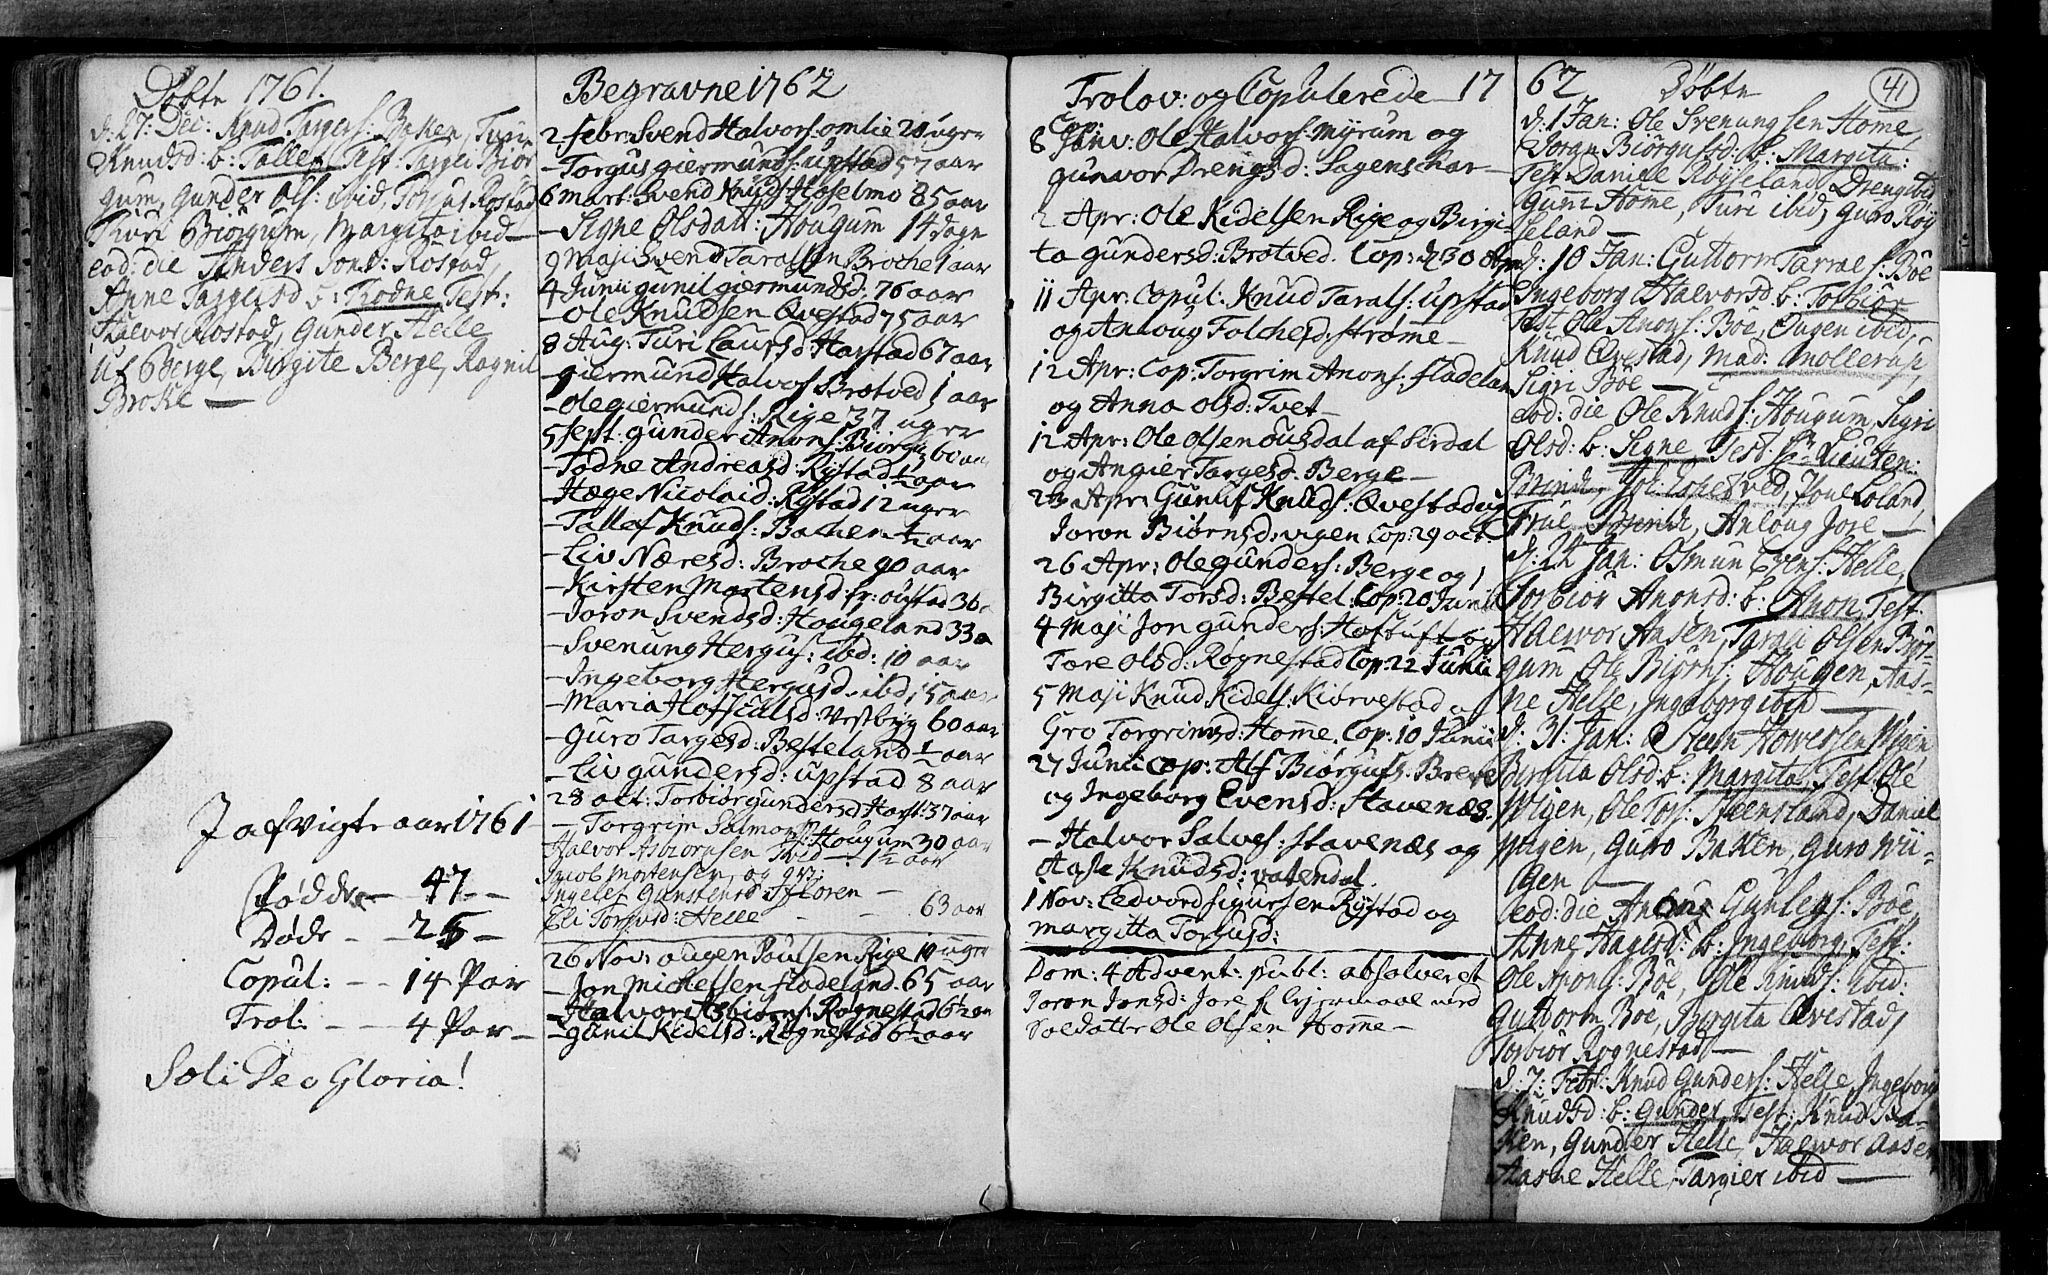 Døbte 1761.
d: 27: Dec: Knud Targers: Baken, Turi
Knudsd: b: Tallef Test: Targer Biør
gum, Gunder Ols: ibid, Torjus Rostad
Turi Biørgum, Margita ibid
eod: die Anders Jons: Rostad,
Anne Taggeisd b: Todne Test:
Halvor Rostad, Gunder Helle
Ulf Berge, Birgite Berge, Rognil
Broke —
J afvigte aar 1761
Fødde — 47 —
Døde — 25 —
Copul: — 14 Par
Trol: — 4 Par —
Soli Deo Gloria!
Begravne 1762
2 febr: Svend Halvors: omlie 20 uger
— Torgus giermunds: upstad 57 aar
6 mart: Svend Knuds Haselmo 85 aar
— Signe Olsdatt: Hougum 14 dage
9 Maji Svend Taralsen Broche 1 aar
4 Junii gunil giermundsd: 76 aar
— Ole Knudsen Qvestad 75 aar
8 Aug: Turi Laursd Harstad 67 aar
— giermund Halvors Brotved 1 aar
— Ole giermunds: Rige 37 uger
5 sept: gunder Anons: Biørgum 60 aar
— Todne Andreasd: Rystad ½ aar
— Hæge Nicolaid: Rystad 12 uger
— Tallef Knuds: Bachen ½ aar
— Liv Næresd: Broche 90 aar
— Kirsten Mortensd fr: oustad 36
— Joron Svendsd: Hougeland 33 a
— Svenung Hergus: ibd: 10 aar
— Ingeborg Hergusd: ibd 15 aar
— Maria Hofsulsd: Vestbyg 60 aar
— Guro Targesd: Besteland ½ aar
— Liv gundersd: upstad 8 aar
28 oct: Torbiør gundersd Harst: 37 aar
— Torgrim Salmons: Hougum 30 aar
Halvor Asbiørnsen Ibid — 1½ aar
Jacob Mortensen, og qv:
Ingelef Gunstensd Ffloren —
Eli Torjusd: Helle — — 63 aar
26 Nov: augen Poulsen Rige 10 uger
— Jon Michelsen fladeland 65 aar
— Halvor Asbiørns: Rognestad 6½ aar
— Gunil Kidelsd: Rognestad 6½ aar
Trolov: og Copulerede 17
Cop:
6 Janv: Ole Halvors: Myrum og
Gunvor Drengsd: Sagenschar —
2 Apr: Ole Kidelsen Rige og Birgi-
ta gundersd: Brotved. Cop: d 30 Apr
11 Apr: Copul: Knud Tarals: upstad
og Anloug Folchesd: strømme —
12 Apr: Cop: Torgrim Anons: fladeland
og Anna Olsd: Tvet —
12 Apr: Ole Olsen ousdal af Sirdal
og Angier Targesd: Berge —
23 Apr: Gunuf Knuds: Qvestad og
Joron Biørnsd: vigen Cop: 29 oct:
26 Apr: Ole gunders: Berge og
Birgitta Torsd: Bestel. Cop: 20 Junii
4 Maji Jon gunders: Hofstuft og
Tore Olsd: Rognestad Cop: 22 Junii
5 Maji Knud Kidels: Kiørvestad og
Gro Torgrimsd: Homme. Cop: 10 Junii
27 Junii Cop: Alf Biørgufs: Breve
og Ingeborg Evensd: Stavenæs.
— Halvor Salves: Stavenæs og
Aase Knudsd: vatendal.
1 Nov: Ledvord Sigursen Rystad og
margitta Torjusd:
Dom: 4 Advent: publ: absolveret
Joron Jonsd: Jore f Leyermaal med
Soldatte Ole Olsen Homme —
62 Døbte
41
d: 1 Jan: Ole Svenungsen Home,
Joran Biørgusd: b: Margita:
Test Daniel Røyseland, Dreng ibid
Guni Home, Turi ibid, Guro Røy
seland —
d: 10 Jan: Guttorm Tarals: Bøe
Ingeborg Halvorsd b: Torbiør
Test Ole Anons: Bøe, Ougen ibid,
Knud Qvestad, Mad: Mollerus,
Sigri Bøe —
eod: die Ole Knuds: Hougum, Sigri
Olsd: b: Signe Test: Sr Lieuten:
Brinch, Joh: Løchetved, Poul Loland
Frue Brinch, Anloug Jore —
d: 24 Jan: Osmun Evens: Helle,
Torbiør Anonsd: b: Anon Test:
Halvor Aasen, Taral Olsen Biør-
gum Ole Biørns: Hougen, Aas-
ne Helle, Ingeborg ibid —
d: 31. Jan: Steen Howersen Wigen
Birgita Olsd: b: Margita, Test: Ole
Wigen, Ole Tors: Steensland, Daniel
Wigen, Guro Bakken, Guro Wii-
gen —
eod: die Anoug Gunlegs: Bøe,
Anne Hagesd: b: Ingeborg Test:
Ole Anons: Bøe, Ole Knuds: ibid:
Guttorm Bøe, Birgita Qvestad,
Torbiør Rognestad —
d: 7: Febr: Knud Gunders: Helle, Ingeborg
Knudsd: b: Gunder Test: Knud Ba-
ken, Gunder Helle, Halvor Aasen
Aasne Helle, Targier ibid —